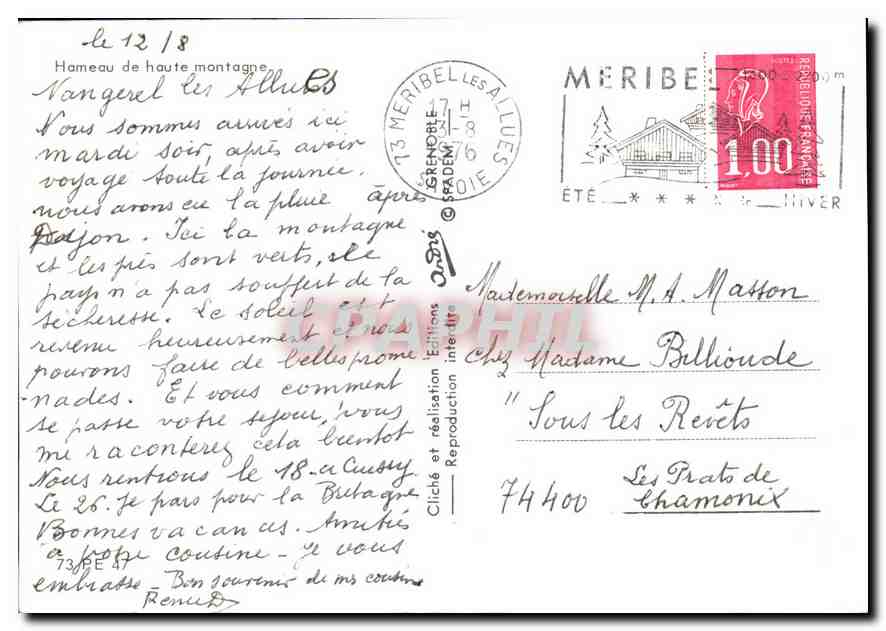 le 12/8
Hameau de haute montagne
Nangerel les Allues
Nous sommes arrivés ici
mardi soir, après avoir
voyagé toute la journée.
nous avons eu la pluie après
Dijon. Ici la montagne
et les prés sont verts, le
pays n'a pas souffert de la
sécheresse. Le soleil est
revenu heureusement et nous
pouvons faire de belles prome-
nades. Et vous comment
se passe votre séjour, vous
me raconterez cela bientôt
Nous rentrons le 18 - a Cuissy.
Le 26. Je pars pour la Bretagne
Bonnes vacances. Amitiés
à votre cousine - je vous
73 PE 47
embrasse - Bon souvenir de ma cousine
Renée D
Cliché et réalisation Editions André GRENOBLE
Reproduction interdite © SPADEM
73 MERIBEL LES ALLUES
17 H
13-8
1976
SAVOIE
MERIBEL
ÉTÉ * * * HIVER
1,00
REPUBLIQUE FRANÇAISE
CPAPHIL
Mademoiselle M. A. Masson
chez Madame Billioude
"Sous les Revêts
74400 Les Prats de
Chamonix